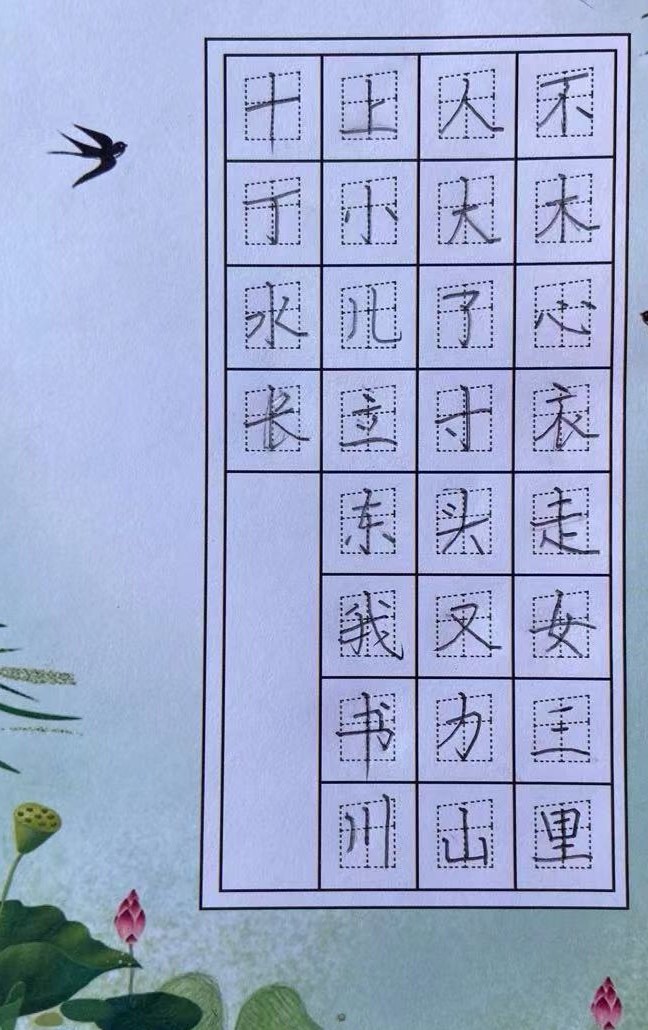 不木心衣走女三里
人大了寸头又力山
上小儿立东我书川
十丁水长